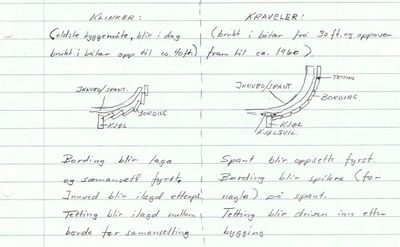 KLINKER:
(eldste byggemåte, blir i dag
brukt i båter opp til ca. 40ft)
INNVED/SPANT.
BORDING
KJØL
Bording blir laga
og samansett fyrst,
Innved blir ilagd etterpå.
Tetting blir ilagd mellom
borda før samansetting
KRAVELER:
(brukt i båter frå 30ft. og oppover
fram til ca. 1960).
TETTING
INNVED/SPANT
BORDING
KJØL
KJØLSVIL.
Spant blir oppsett fyrst
Bording blir spikra (før
nagla) på spant.
Tetting blir driven inn etter
bygging